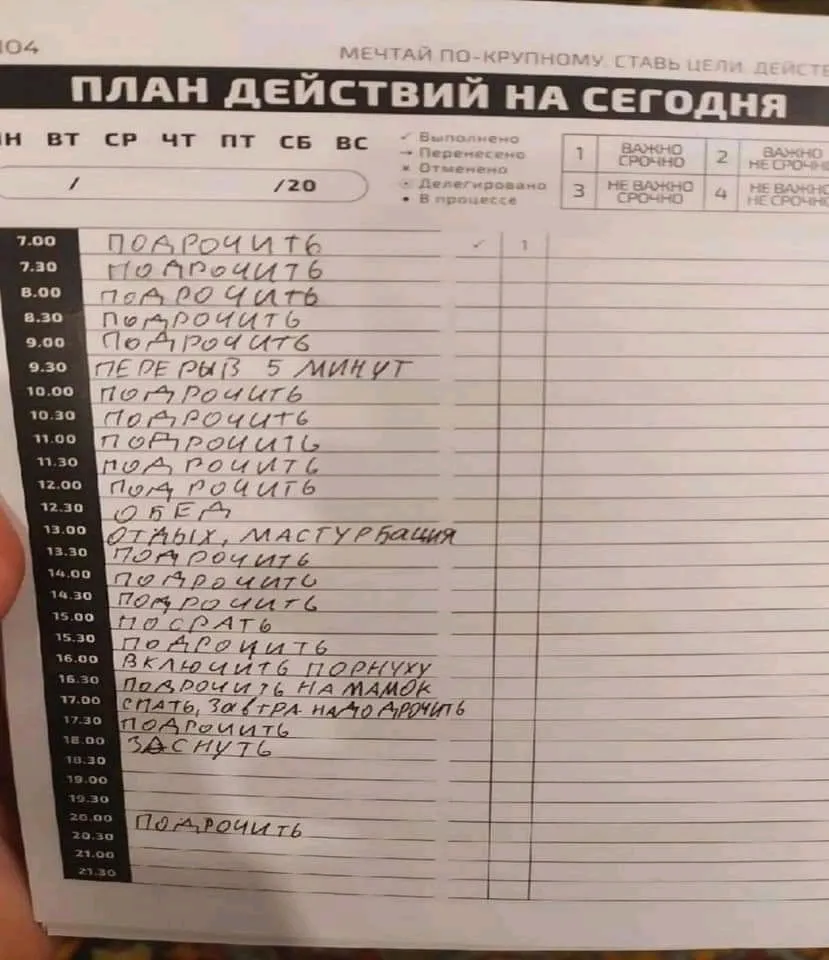 104
МЕЧТАЙ ПО-КРУПНОМУ. СТАВЬ ЦЕЛИ. ДЕЙСТВ
ПЛАН ДЕЙСТВИЙ НА СЕГОДНЯ
ПН ВТ СР ЧТ ПТ СБ ВС
/ /20
✓ Выполнено
→ Перенесено
× Отменено
Делегировано
• В процессе
1 ВАЖНО СРОЧНО 2 ВАЖНО НЕ СРОЧНО
3 НЕ ВАЖНО СРОЧНО 4 НЕ ВАЖНО НЕ СРОЧНО
7.00 ПОДРОЧИТЬ ✓ 1
7.30 ПОДРОЧИТЬ
8.00 ПОДРОЧИТЬ
8.30 ПОДРОЧИТЬ
9.00 ПОДРОЧИТЬ
9.30 ПЕРЕРЫВ 5 МИНУТ
10.00 ПОДРОЧИТЬ
10.30 ПОДРОЧИТЬ
11.00 ПОДРОЧИТЬ
11.30 ПОДРОЧИТЬ
12.00 ПОДРОЧИТЬ
12.30 ОБЕД
13.00 ОТДЫХ, МАСТУРБАЦИЯ
13.30 ПОДРОЧИТЬ
14.00 ПОДРОЧИТЬ
14.30 ПОДРОЧИТЬ
15.00 ПОСРАТЬ
15.30 ПОДРОЧИТЬ
16.00 ВКЛЮЧИТЬ ПОРНУХУ
16.30 ПОДРОЧИТЬ НА МАМОК
17.00 СПАТЬ, ЗАВТРА НАДО ДРОЧИТЬ
17.30 ПОДРОЧИТЬ
18.00 ЗАСНУТЬ
18.30
19.00
19.30
20.00 ПОДРОЧИТЬ
20.30
21.00
21.30